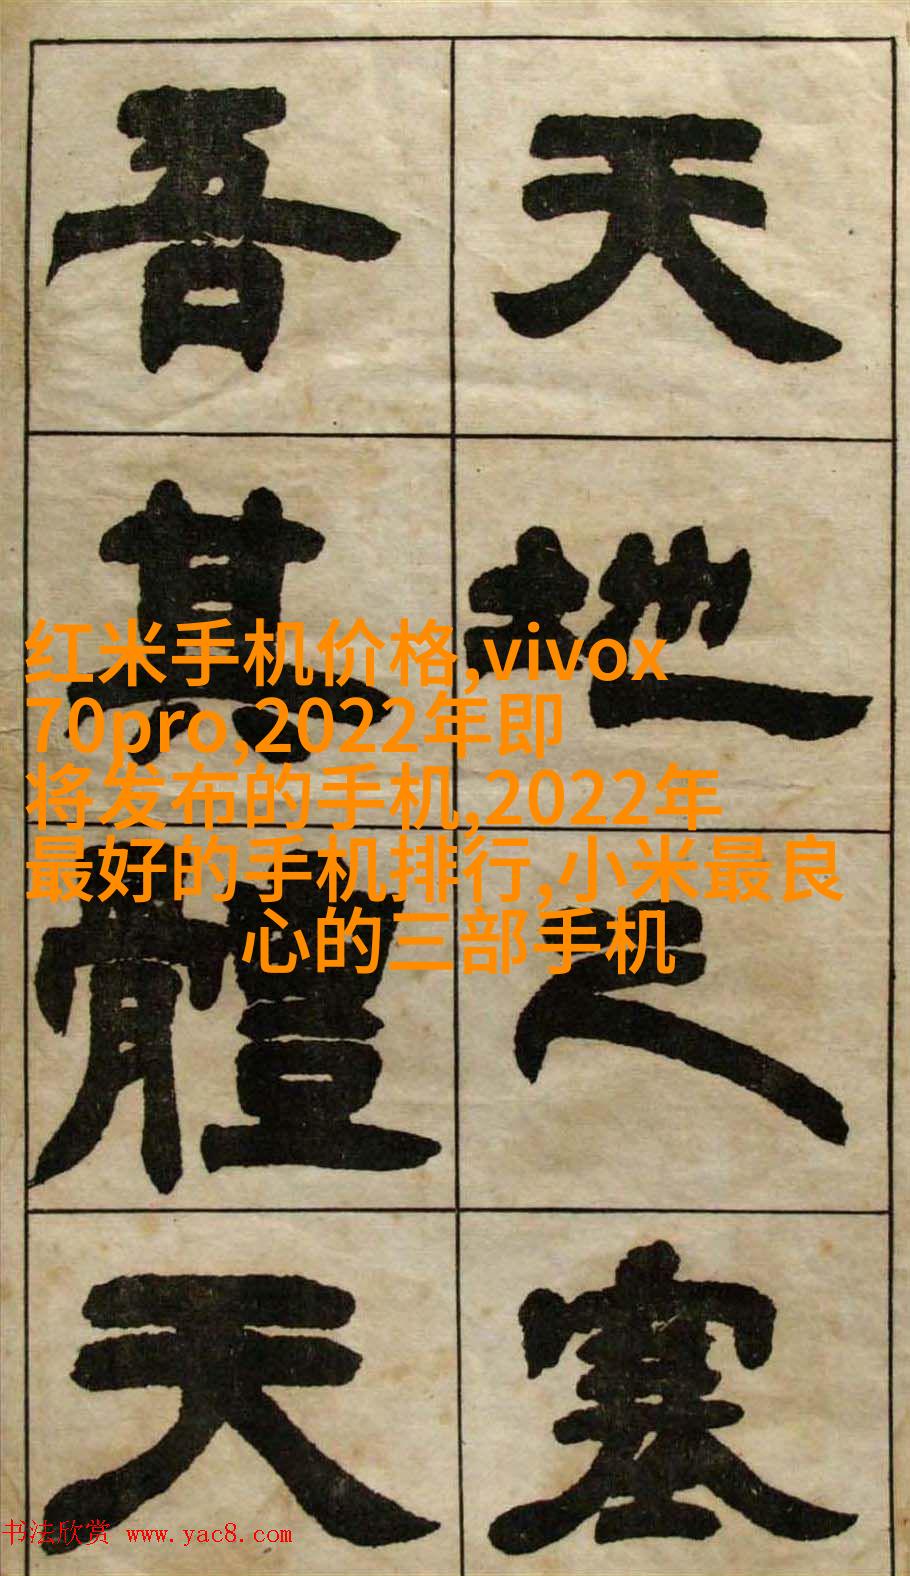 天地之塞
吾其體天
红米手机价格,vivox
70pro,2022年即
将发布的手机,2022年
最好的手机排行,小米最良
心的三部手机
书法欣赏 www.yac8.com